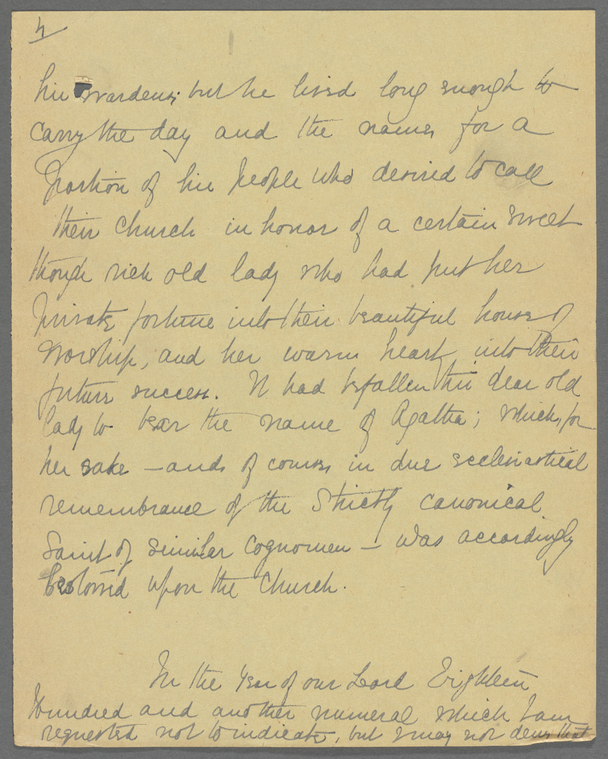 4
his wardens; but he lived long enough to
carry the day and the name, for a
portion of his people who desired to call
their church in honor of a certain sweet
though rich old lady who had put her
private fortune into their beautiful house of
worship, and her warm heart into their
future success. It had befallen this dear old
lady to bear the name of Agatha; which, for
her sake – and, of course, in due ecclesiastical
remembrance of the strictly canonical
saint of similar cognomen – was accordingly
bestowed upon the church.
In the year of our Lord Eighteen
Hundred and another numeral which I am
requested not to indicate, but may not deny that